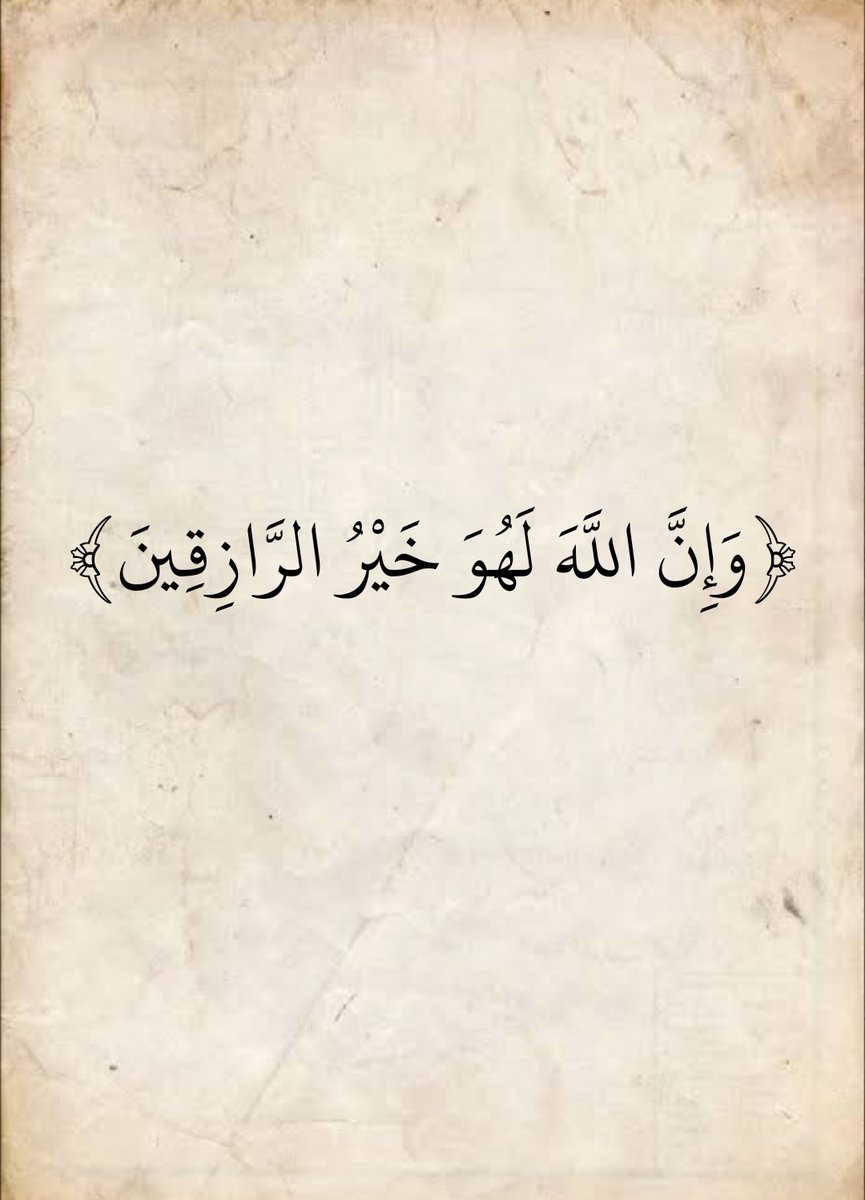 ﴿وَإِنَّ اللَّهَ لَهُوَ خَيْرُ الرَّازِقِينَ﴾